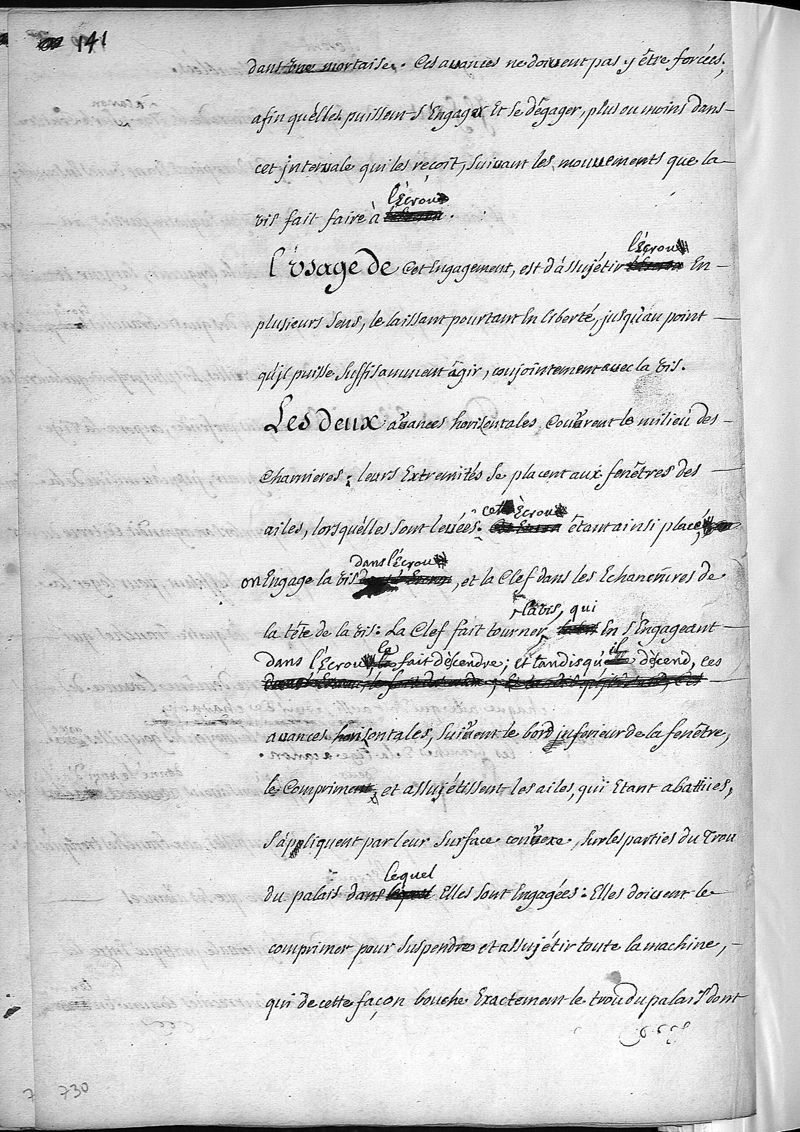 141
dans une mortaise. Ces avances ne doivent pas y être forcées,
afin qu'elles puissent s'Engager Et se dégager, plus ou moins dans
cet intervale qui les reçoit, suivant les mouvements que la
vis fait faire à l'Ecrou.
L'usage de cet Engagement, est d'assujétir l'écrou En
plusieurs sens, le laissant pourtant En liberté, jusqu'au point
qu'il puisse suffisamment agir, conjointement avec la vis.
Les deux avances horisontales, Couvrent le milieu des
Charnieres; leurs Extremités se placent aux fenêtres des
ailes, lorsqu'elles sont levées. cet Ecrou étant ainsi placé,
on Engage la vis dans l'Ecrou, et la Clef dans les Echancrures de
la tête de la vis: La Clef fait tourner la vis, qui En s'Engageant
dans l'Ecrou le fait décendre; et tandis qu'il décend, ces
avances horisontales, suivent le bord inferieur de la fenêtre,
le Compriment, et assujétissent les ailes, qui Etant abattües,
s'apliquent par leur surface convexe, sur les parties du Trou
du palais dans lequel Elles sont Engagées: Elles doivent le
comprimer pour suspendre et assujétir toute la machine,
qui de cette façon bouche Exactement le trou du palais dont
730